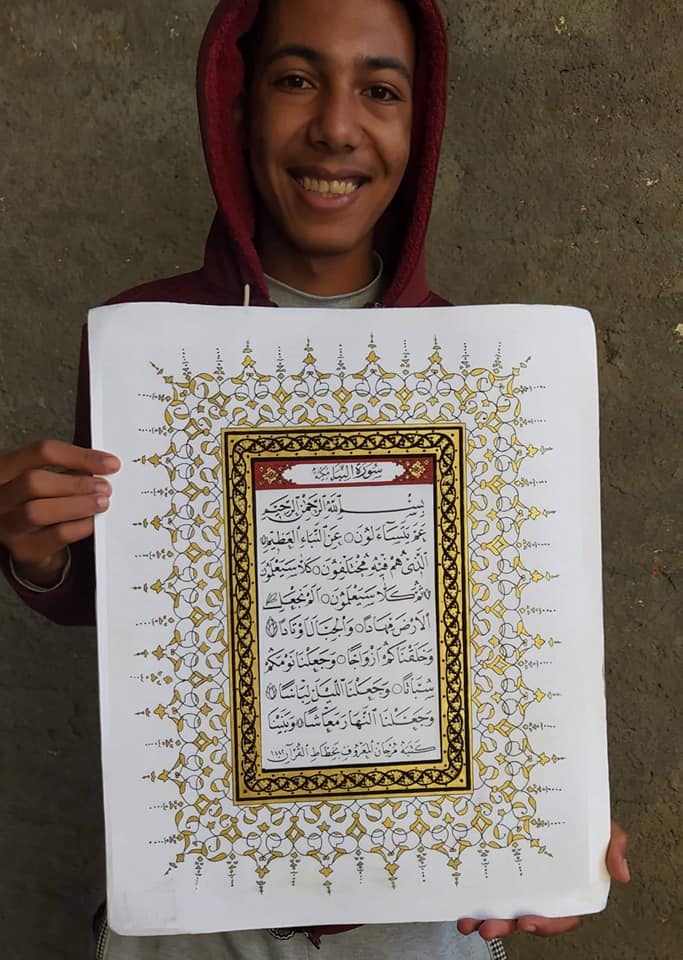 سُورَةُ النَّبَاءِ مَكِّيَّة
بِسْمِ اللَّهِ الرَّحْمٰنِ الرَّحِيمِ
عَمَّ يَتَسَآءَلُوْنَ ۝ عَنِ النَّبَاءِ الْعَظِيْمِ ۝
الَّذِيْ هُمْ فِيْهِ مُخْتَلِفُوْنَ ۝ كَلَّا سَيَعْلَمُوْنَ
۝ ثُمَّ كَلَّا سَيَعْلَمُوْنَ ۝ اَلَمْ نَجْعَلِ
الْاَرْضَ مِهَادًا ۝ وَالْجِبَالَ اَوْتَادًا ۝
وَخَلَقْنَاكُمْ اَزْوَاجًا ۝ وَجَعَلْنَا نَوْمَكُمْ
سُبَاتًا ۝ وَجَعَلْنَا اللَّيْلَ لِبَاسًا ۝
وَجَعَلْنَا النَّهَارَ مَعَاشًا ۝ وَبَنَيْنَا
كَتَبَهُ مَرْجَان الْمَعْرُوف بِخَطَّاطِ الْقُرْآن